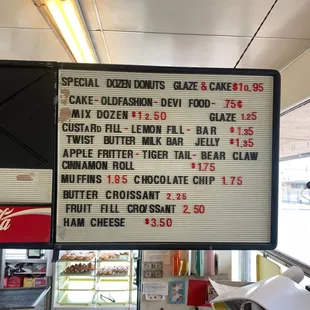 SPECIAL DOZEN DONUTS GLAZE & CAKE $10.95
CAKE - OLDFASHION - DEVI FOOD - .75¢
MIX DOZEN $12.50 GLAZE 1.25
CUSTARD FILL - LEMON FILL - BAR $1.35
TWIST BUTTER MILK BAR JELLY $1.35
APPLE FRITTER - TIGER TAIL - BEAR CLAW
CINNAMON ROLL $1.75
MUFFINS 1.85 CHOCOLATE CHIP 1.75
BUTTER CROISSANT 2.25
FRUIT FILL CROISSANT 2.50
HAM CHEESE $3.50